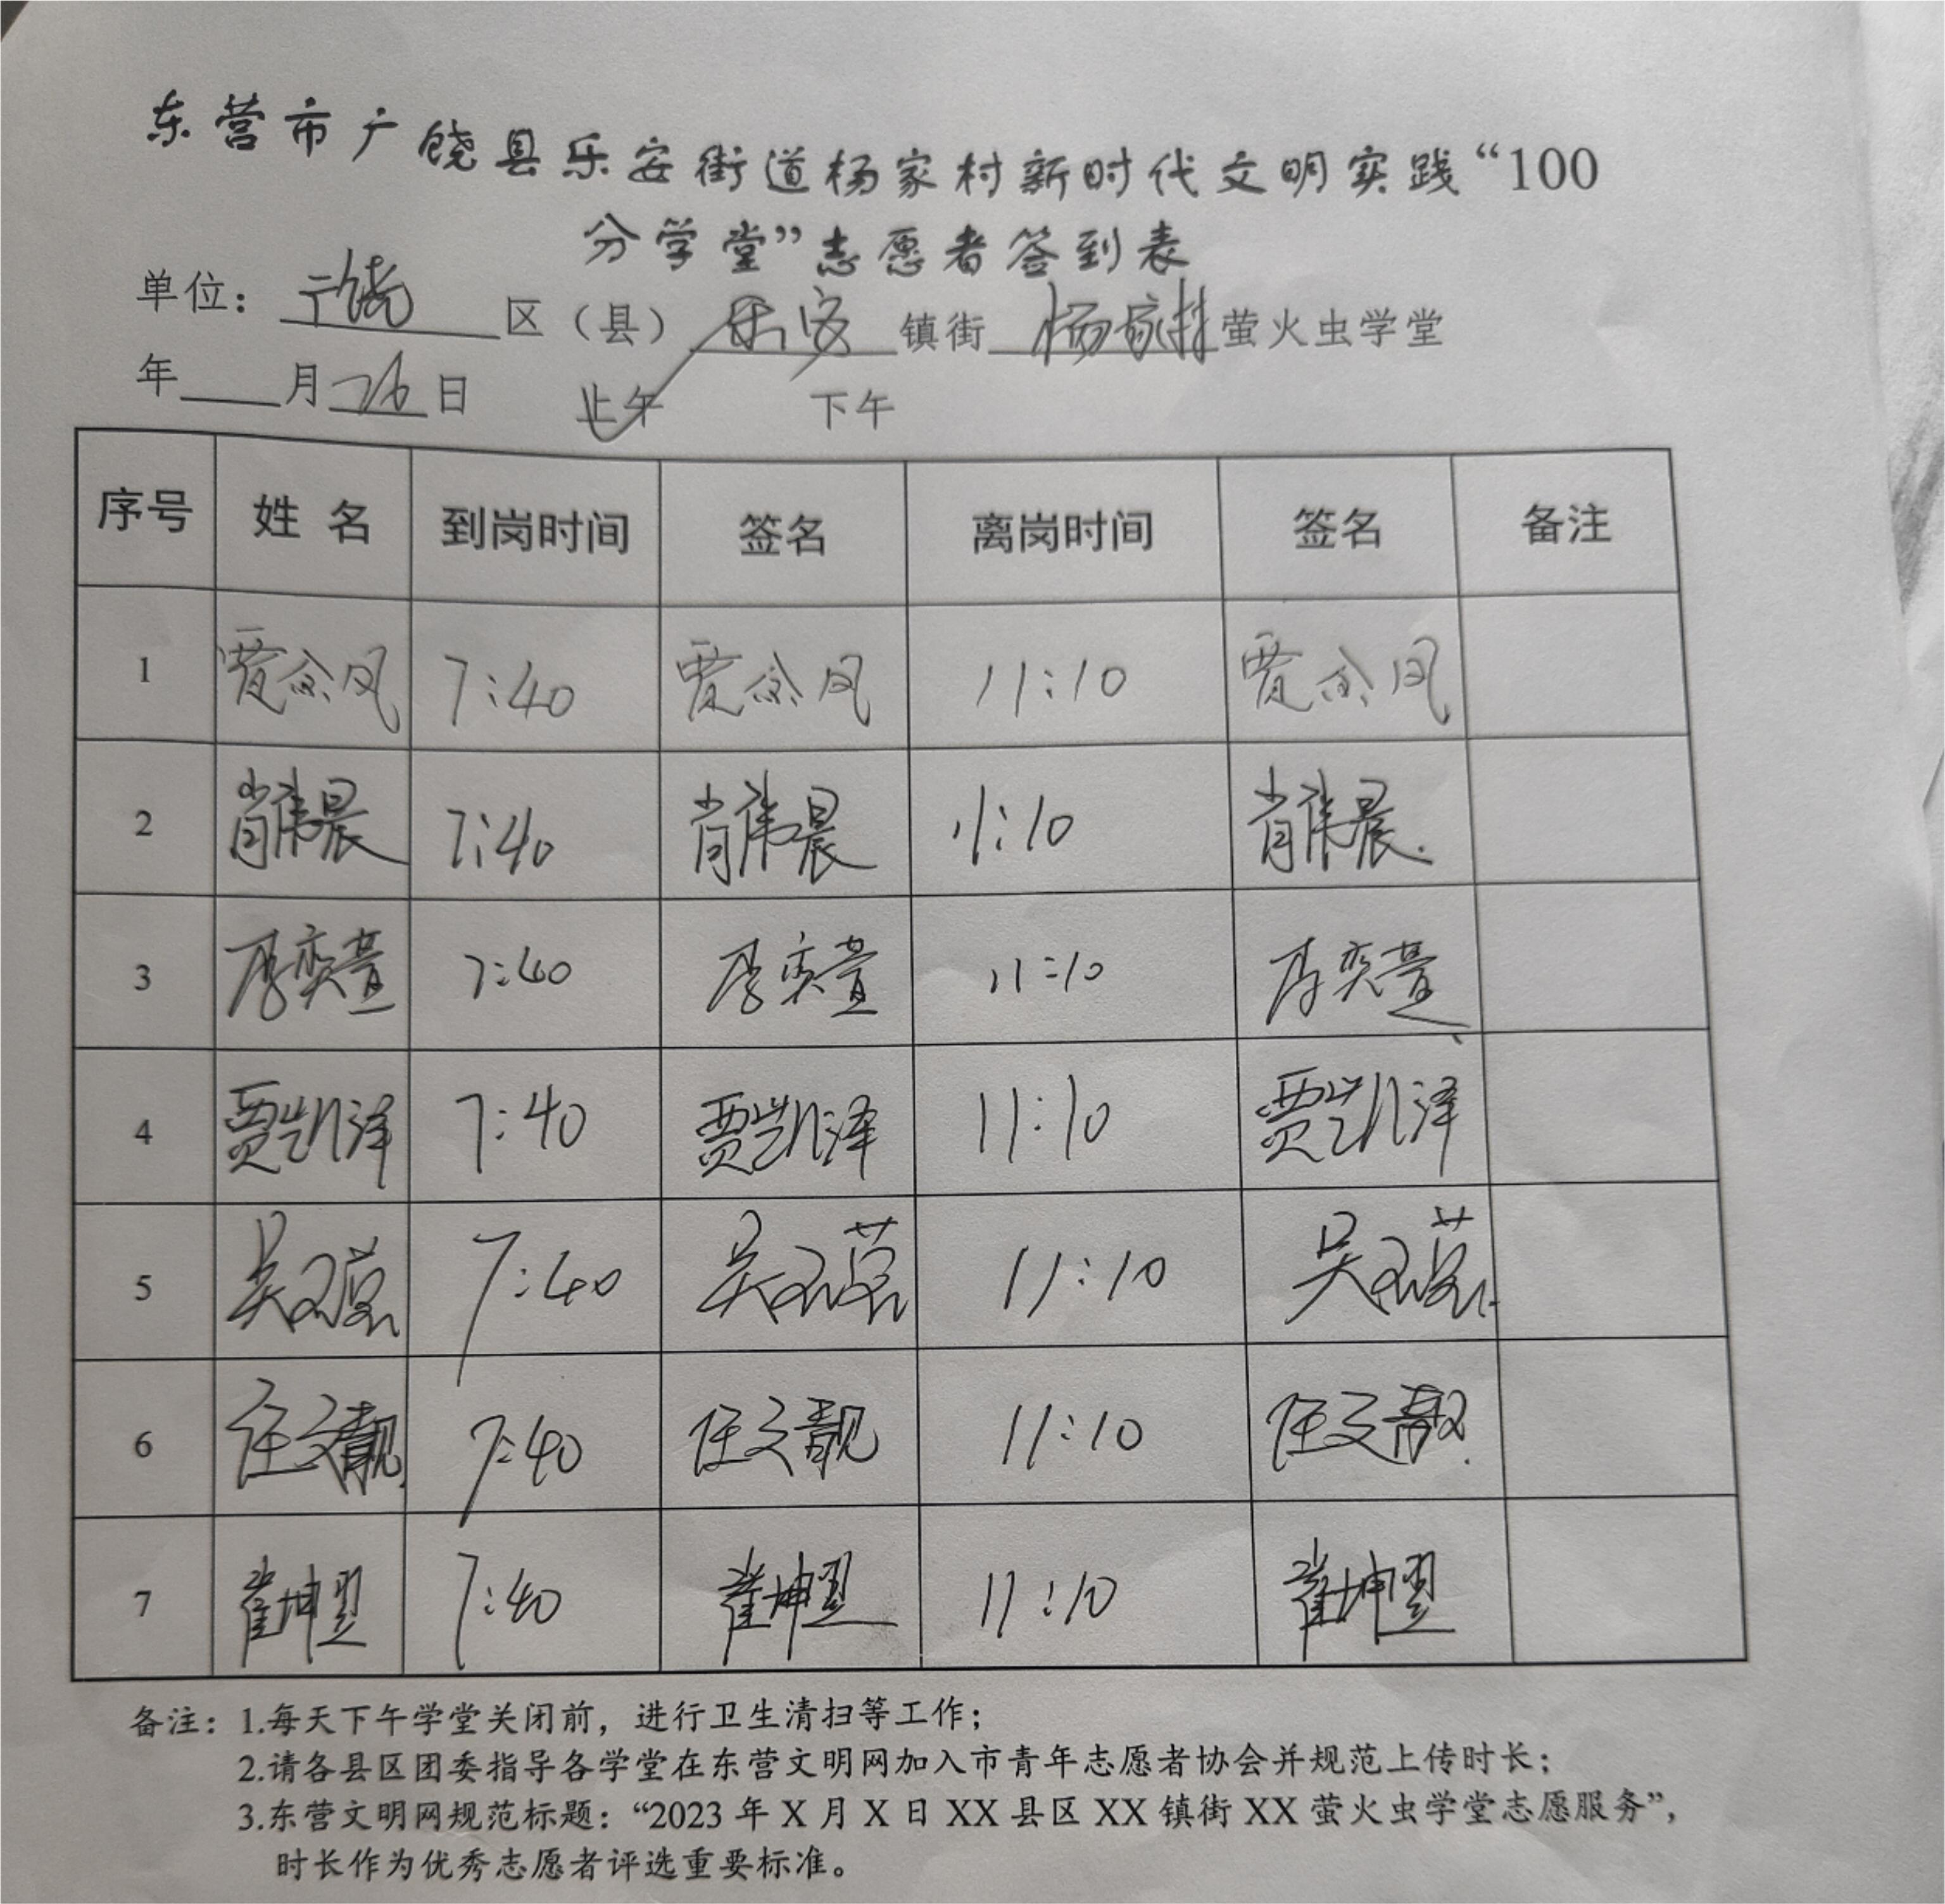 东营市广饶县乐安街道杨家村新时代文明实践“100
分学堂”志愿者签到表
单位：广饶区（县）乐安镇街杨家村萤火虫学堂
年____月26日 上午 下午
序号 姓名 到岗时间 签名 离岗时间 签名 备注
1 贾念凤 7:40 贾念凤 11:10 贾念凤
2 肖韩晨 7:40 肖韩晨 11:10 肖韩晨
3 李奕萱 7:40 李奕萱 11:10 李奕萱
4 贾凯泽 7:40 贾凯泽 11:10 贾凯泽
5 吴 7:40 吴 11:10 吴
6 任文靓 7:40 任文靓 11:10 任文靓
7 崔坤翌 7:40 崔坤翌 11:10 崔坤翌
备注：1.每天下午学堂关闭前，进行卫生清扫等工作；
2.请各县区团委指导各学堂在东营文明网加入市青年志愿者协会并规范上传时长；
3.东营文明网规范标题：“2023 年 X 月 X 日 XX 县区 XX 镇街 XX 萤火虫学堂志愿服务”，
时长作为优秀志愿者评选重要标准。